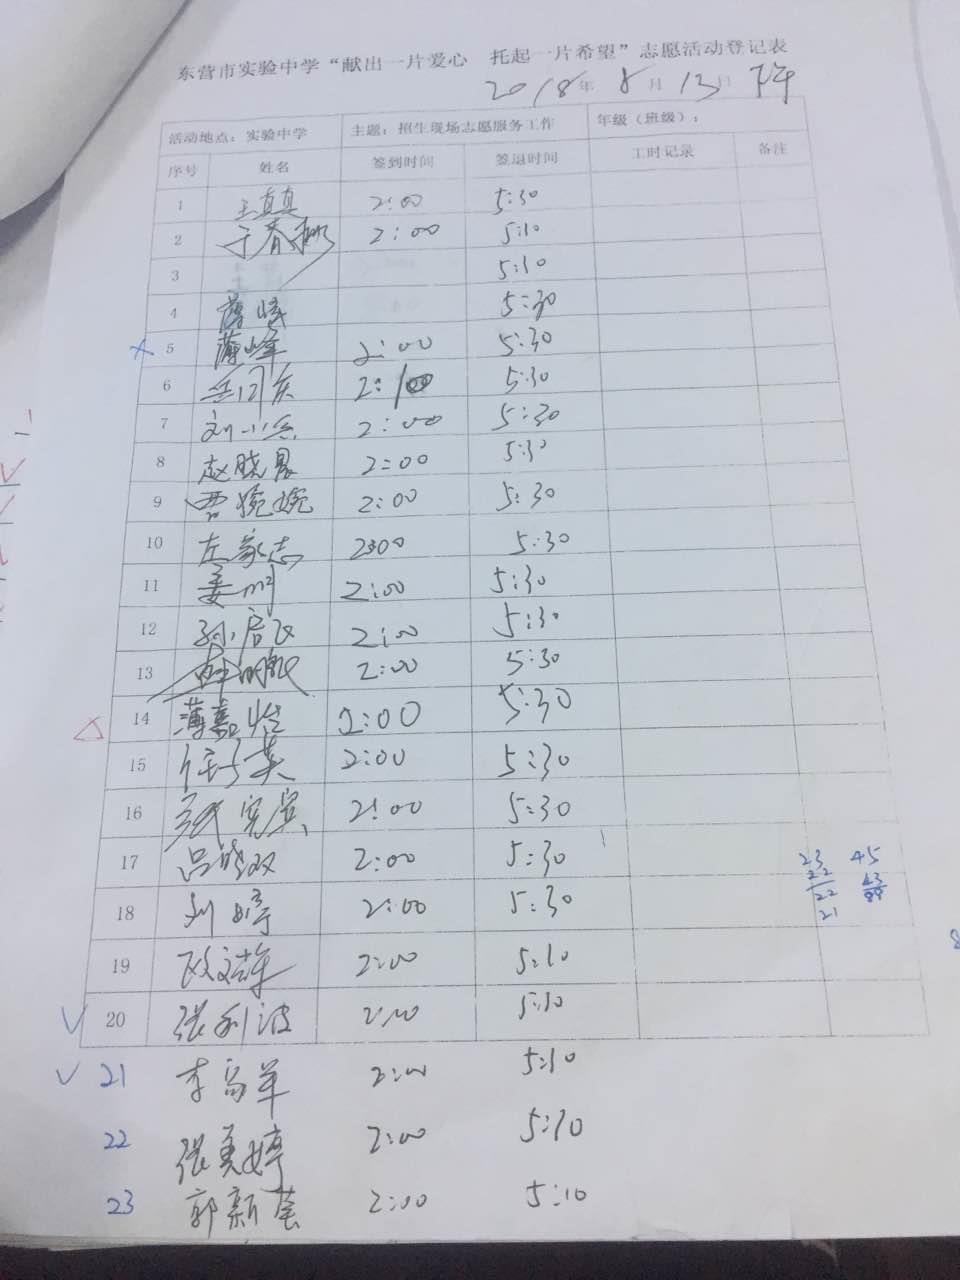 东营市实验中学“献出一片爱心 托起一片希望”志愿活动登记表
2018年8月13日 下午
活动地点：实验中学 主题：招生现场志愿服务工作 年级（班级）：
序号 姓名 签到时间 签退时间 工时记录 备注
1 王真真 2:00 5:30
2 于春 2:00 5:10
3 5:10
4 薄 5:30
5 薄峰 2:00 5:30
6 2:00 5:30
7 刘小 2:00 5:30
8 赵晓晨 2:00 5:30
9 曹婉婉 2:00 5:30
10 左家志 2:00 5:30
11 姜 2:00 5:30
12 孙启飞 2:00 5:30
13 韩明 2:00 5:30
14 薄嘉怡 2:00 5:30
15 英 2:00 5:30
16 张 2:00 5:30
17 吕晓双 2:00 5:30
23 45
22 43
22 88
21
18 刘婷 2:00 5:30
19 2:00 5:10
20 张利波 2:00 5:10
21 李 2:00 5:10
22 张 婷 2:00 5:10
23 郭新 2:00 5:10